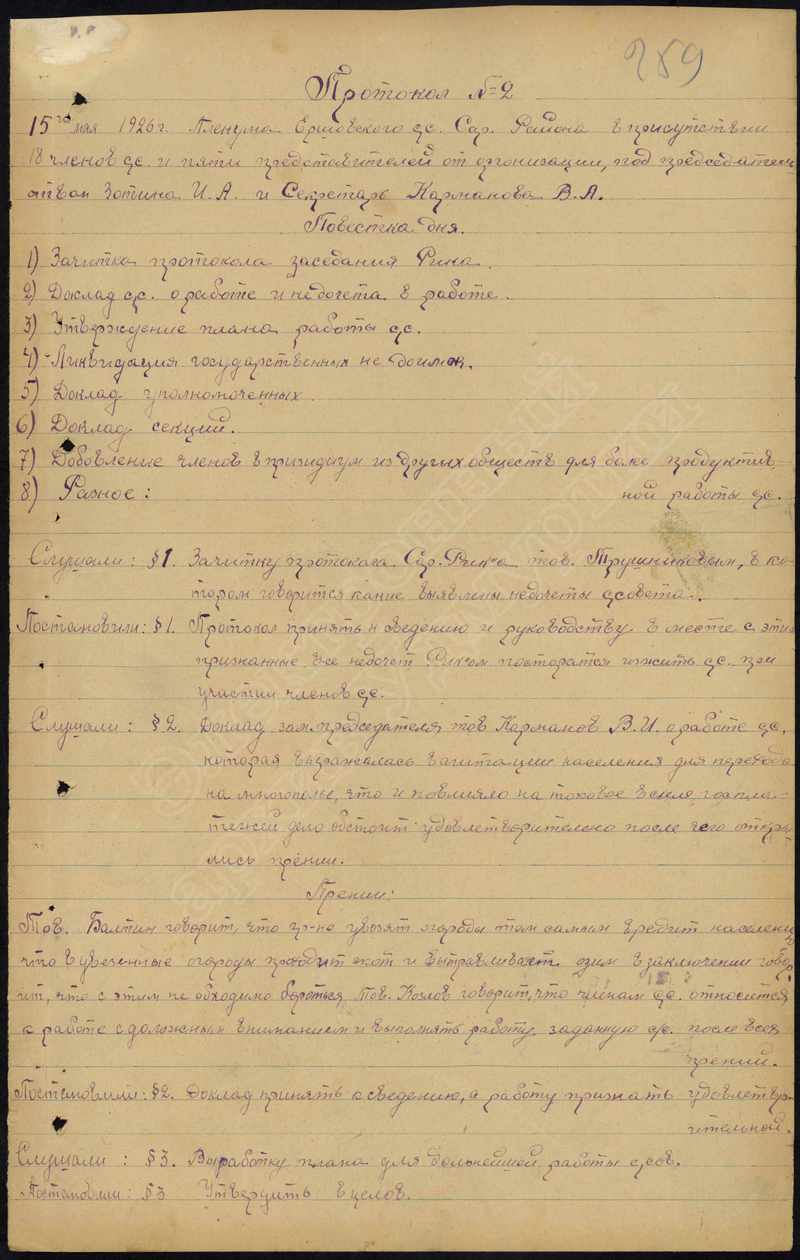 259
Протокол №2
15го мая 1926 г. Пленума Ершовского с/с. Сар. Района в присутствии
18 членов с/с. и пяти представителей от организации, под председатель
ством Зотина И.А. и Секретарь Карманова В.А.
Повестка дня.
1) Зачитка протокола заседания Рика.
2) Доклад с/с. о работе и недочета в работе.
3) Утверждение плана работы с/с.
4) Ликвидация государственных не доимок.
5) Доклад уполномоченных
6) Доклад секций.
7) Добовление членов в призидиум из других обществ для более продуктив
8) Разное: ной работы с/с.
Слушали: §1. Зачитку протокола Сар. Рика тов. Трушниковым, в ко-
тором говорится какие выявлены недочеты с/совета.
Постановили: §1. Протокол принять к сведению и руководству в месте с этим
признанные все недочет Риком посторатся изжить с/с. при
участии членов с/с.
Слушали: §2. Доклад зам. председателя тов Карманов В.И. о работе с/с,
которая выражалась в агитации населения для перевода
на многополье, что и повлияло на таковое
дело обстоит удовлетворительно после его откры-
лись прении.
Прении:
Тов. Балтин говорит, что гр-не увозят огороды тем самым вредит населению
что в увезенные огороды проходит скот и вытравливает озим в заключении говор
ит, что с этим не обходимо бороться Тов. Козлов говорит, что членам с/с. относится
к работе с должным вниманием и выполнять работу заданную с/с. после всех
прений.
Постановили: §2. Доклад принять к сведению, а работу признать удовлетвор-
ительной.
Слушали: §3. Выработку плана для дольнейшей работы с/сов.
Постановили: §3 Утвердить в целом.